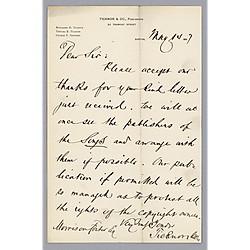 TICKNOR & CO., PUBLISHERS
211 TREMONT STREET
BENJAMIN H. TICKNOR
THOMAS B. TICKNOR
GEORGE F. GODFREY
BOSTON, May 14 - 7
Dear Sir:
Please accept our
thanks for your kind letter
just received. We will at
once see the publishers of
the Songs and arrange with
them if possible. Our pub-
lication if permitted will be
so managed as to protect all
the rights of the copyright owner.
Very truly Yours
Ticknor & Co